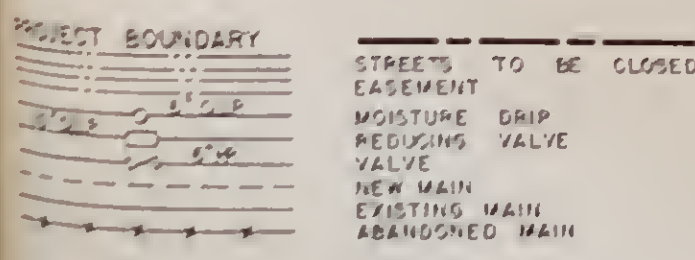 PROJECT BOUNDARY
STREETS TO BE CLOSED
EASEMENT
MOISTURE DRIP
REDUCING VALVE
VALVE
NEW MAIN
EXISTING MAIN
ABANDONED MAIN